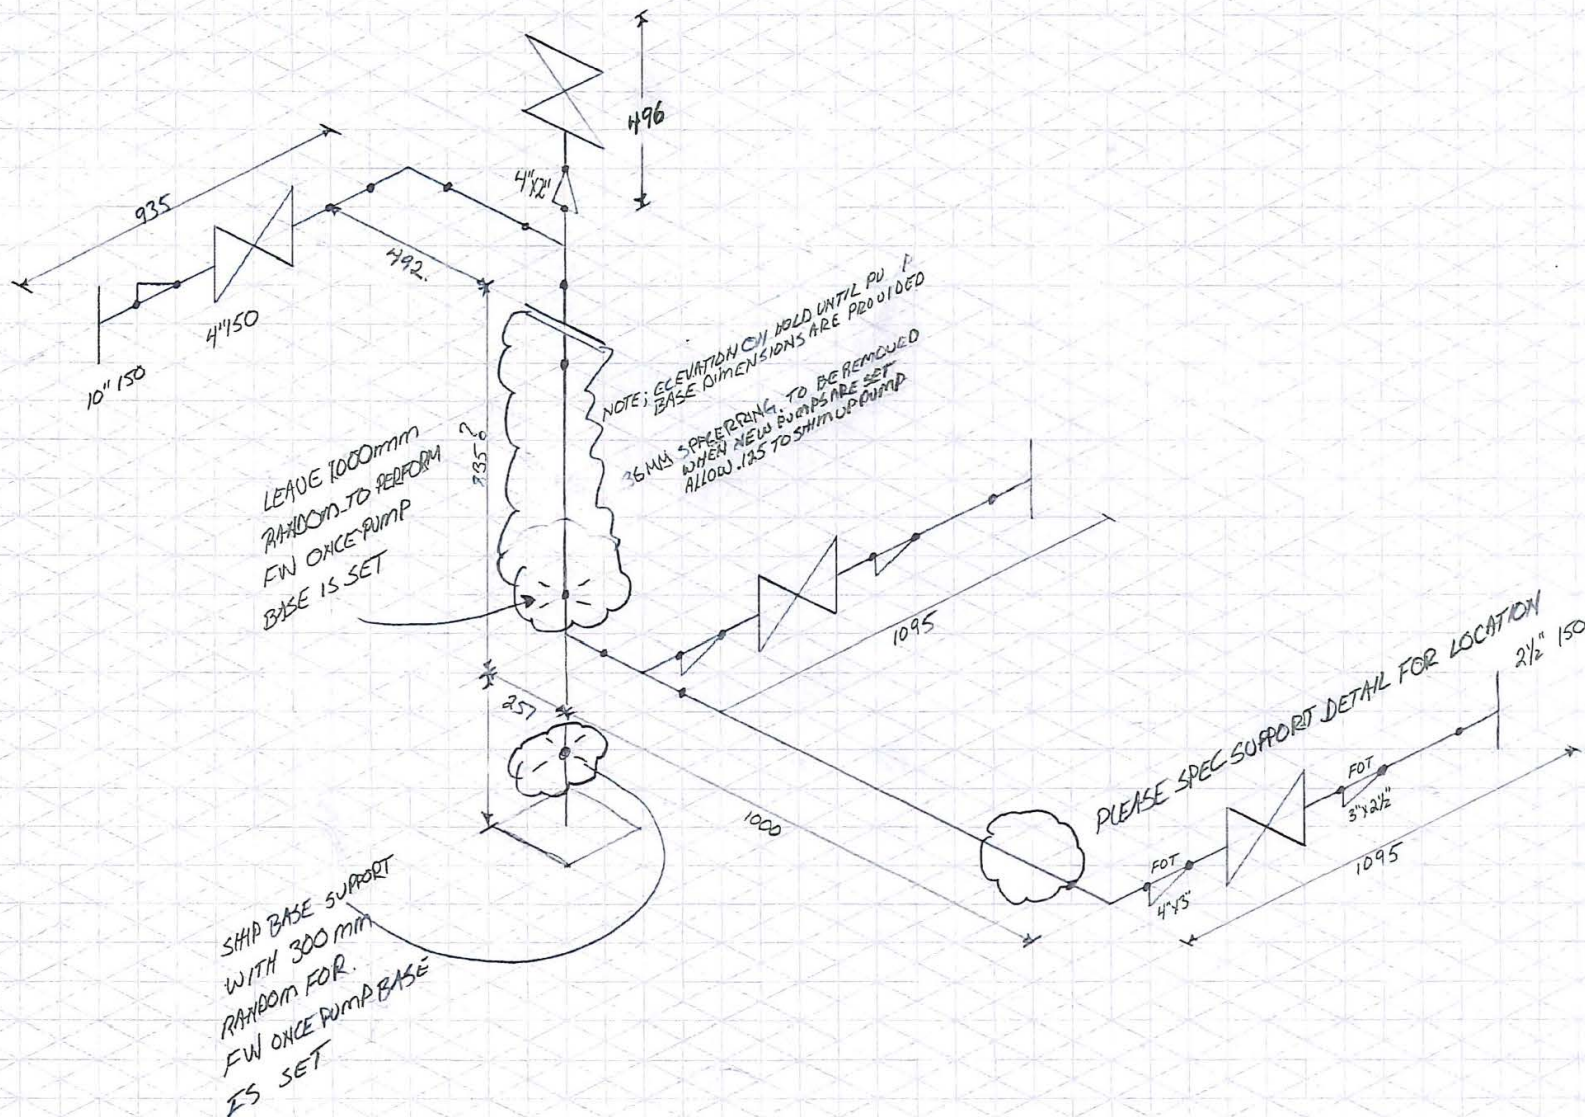 496
4"x2"
935
492.
4"150
10" 150
NOTE; ELEVATION ON HOLD UNTIL PU P
BASE DIMENSIONS ARE PROVIDED
36MM SPACER RING. TO BE REMOVED
WHEN NEW PUMPS ARE SET
ALLOW .125 TO SHIM UP PUMP
LEAVE 1000mm
RANDOM TO PERFORM
FW ONCE PUMP
BASE IS SET
1095
PLEASE SPEC SUPPORT DETAIL FOR LOCATION
2½" 150
257
1000
FOT
3"x2½"
FOT
4"x3"
1095
SHIP BASE SUPPORT
WITH 300 mm
RANDOM FOR.
FW ONCE PUMP BASE
IS SET